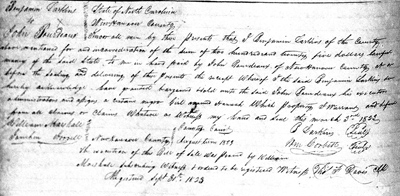 Benjamin Larkins State of North Carolina
to New Hanover County
John Bourdeaux Know all men by these Presents that I Benjamin Larkins of the County
above mentioned for and in consideration of the sum of two hundred and twenty five dollars lawful
money of the said State to me in hand paid by John Bourdeaux of New Hanover County at or
before the sealing and delivery of these presents the receipt Whereof I the said Benjamin Larkins do
hereby acknowledge have granted bargained sold unto the said John Bourdeaux his executors
administrators and assigns a certain negro Girl named Hannah Which property I Warrant and defend
from all claims or claims Whatever as Witness my hand and seal this March 5th 1832
William Marshall County Court B Larkins (Seal)
New Hanover County August Term 1833 Wm Corbett (Seal)
The execution of this Bill of Sale was proved by William
Marshall subscribing Witness & ordered to be registered Witness Thos F Davis Clk
Registered Sept 21st 1833